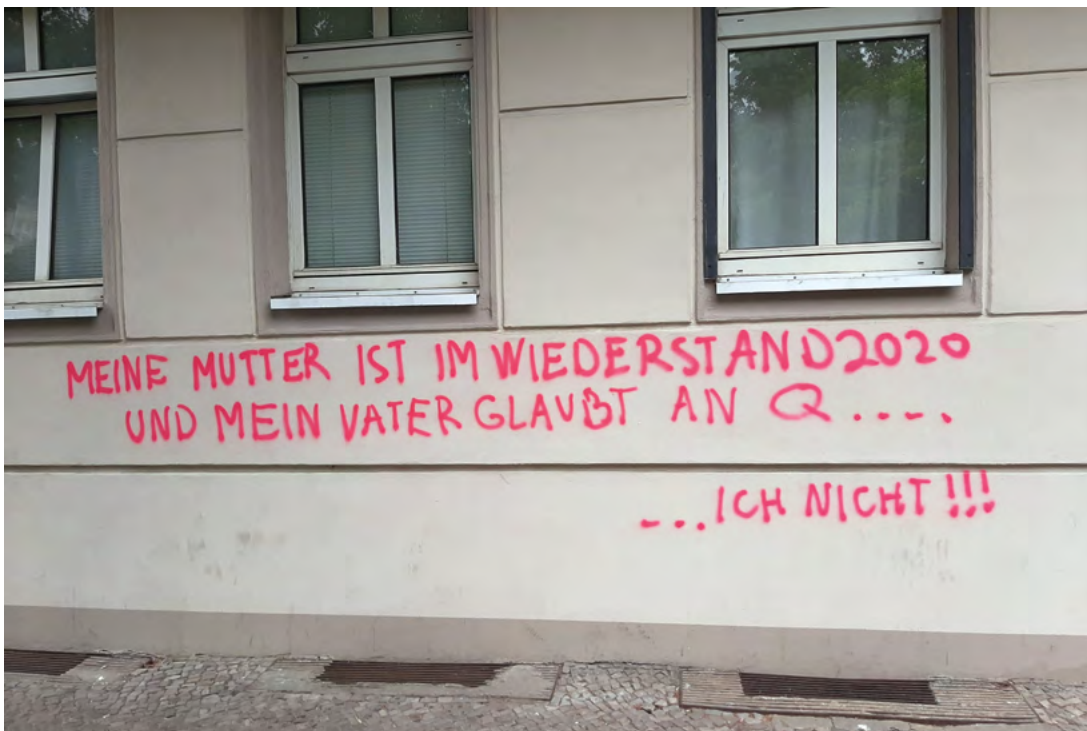 MEINE MUTTER IST IM WIEDERSTAND2020
UND MEIN VATER GLAUBT AN Q....
...ICH NICHT!!!